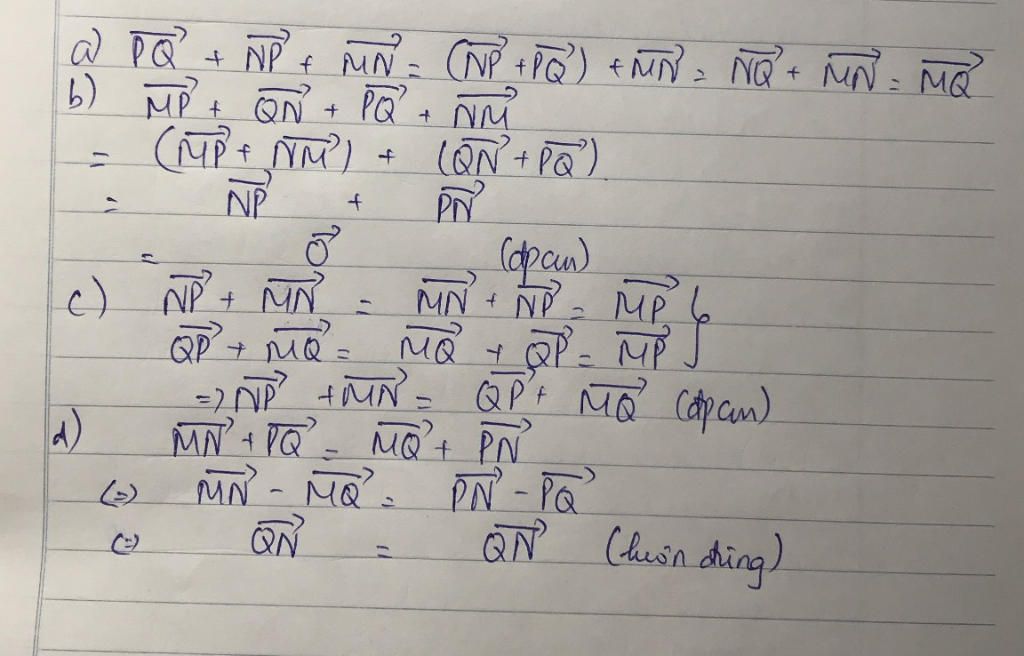 a) $\overrightarrow{PQ} + \overrightarrow{NP} + \overrightarrow{MN} = (\overrightarrow{NP} + \overrightarrow{PQ}) + \overrightarrow{MN} = \overrightarrow{NQ} + \overrightarrow{MN} = \overrightarrow{MQ}$
b) $\overrightarrow{MP} + \overrightarrow{QN} + \overrightarrow{PQ} + \overrightarrow{NM}$
$= (\overrightarrow{MP} + \overrightarrow{NM}) + (\overrightarrow{QN} + \overrightarrow{PQ}).$
$= \overrightarrow{NP} + \overrightarrow{PN}$
$= \overrightarrow{O}$ (đpcm)
c) $\overrightarrow{NP} + \overrightarrow{MN} = \overrightarrow{MN} + \overrightarrow{NP} = \overrightarrow{MP}$ }
$\overrightarrow{QP} + \overrightarrow{MQ} = \overrightarrow{MQ} + \overrightarrow{QP} = \overrightarrow{MP}$
$\Rightarrow \overrightarrow{NP} + \overrightarrow{MN} = \overrightarrow{QP} + \overrightarrow{MQ}$ (đpcm)
d) $\overrightarrow{MN} + \overrightarrow{PQ} = \overrightarrow{MQ} + \overrightarrow{PN}$
$\Leftrightarrow \overrightarrow{MN} - \overrightarrow{MQ} = \overrightarrow{PN} - \overrightarrow{PQ}$
$\Leftrightarrow \overrightarrow{QN} = \overrightarrow{QN}$ (luôn đúng)